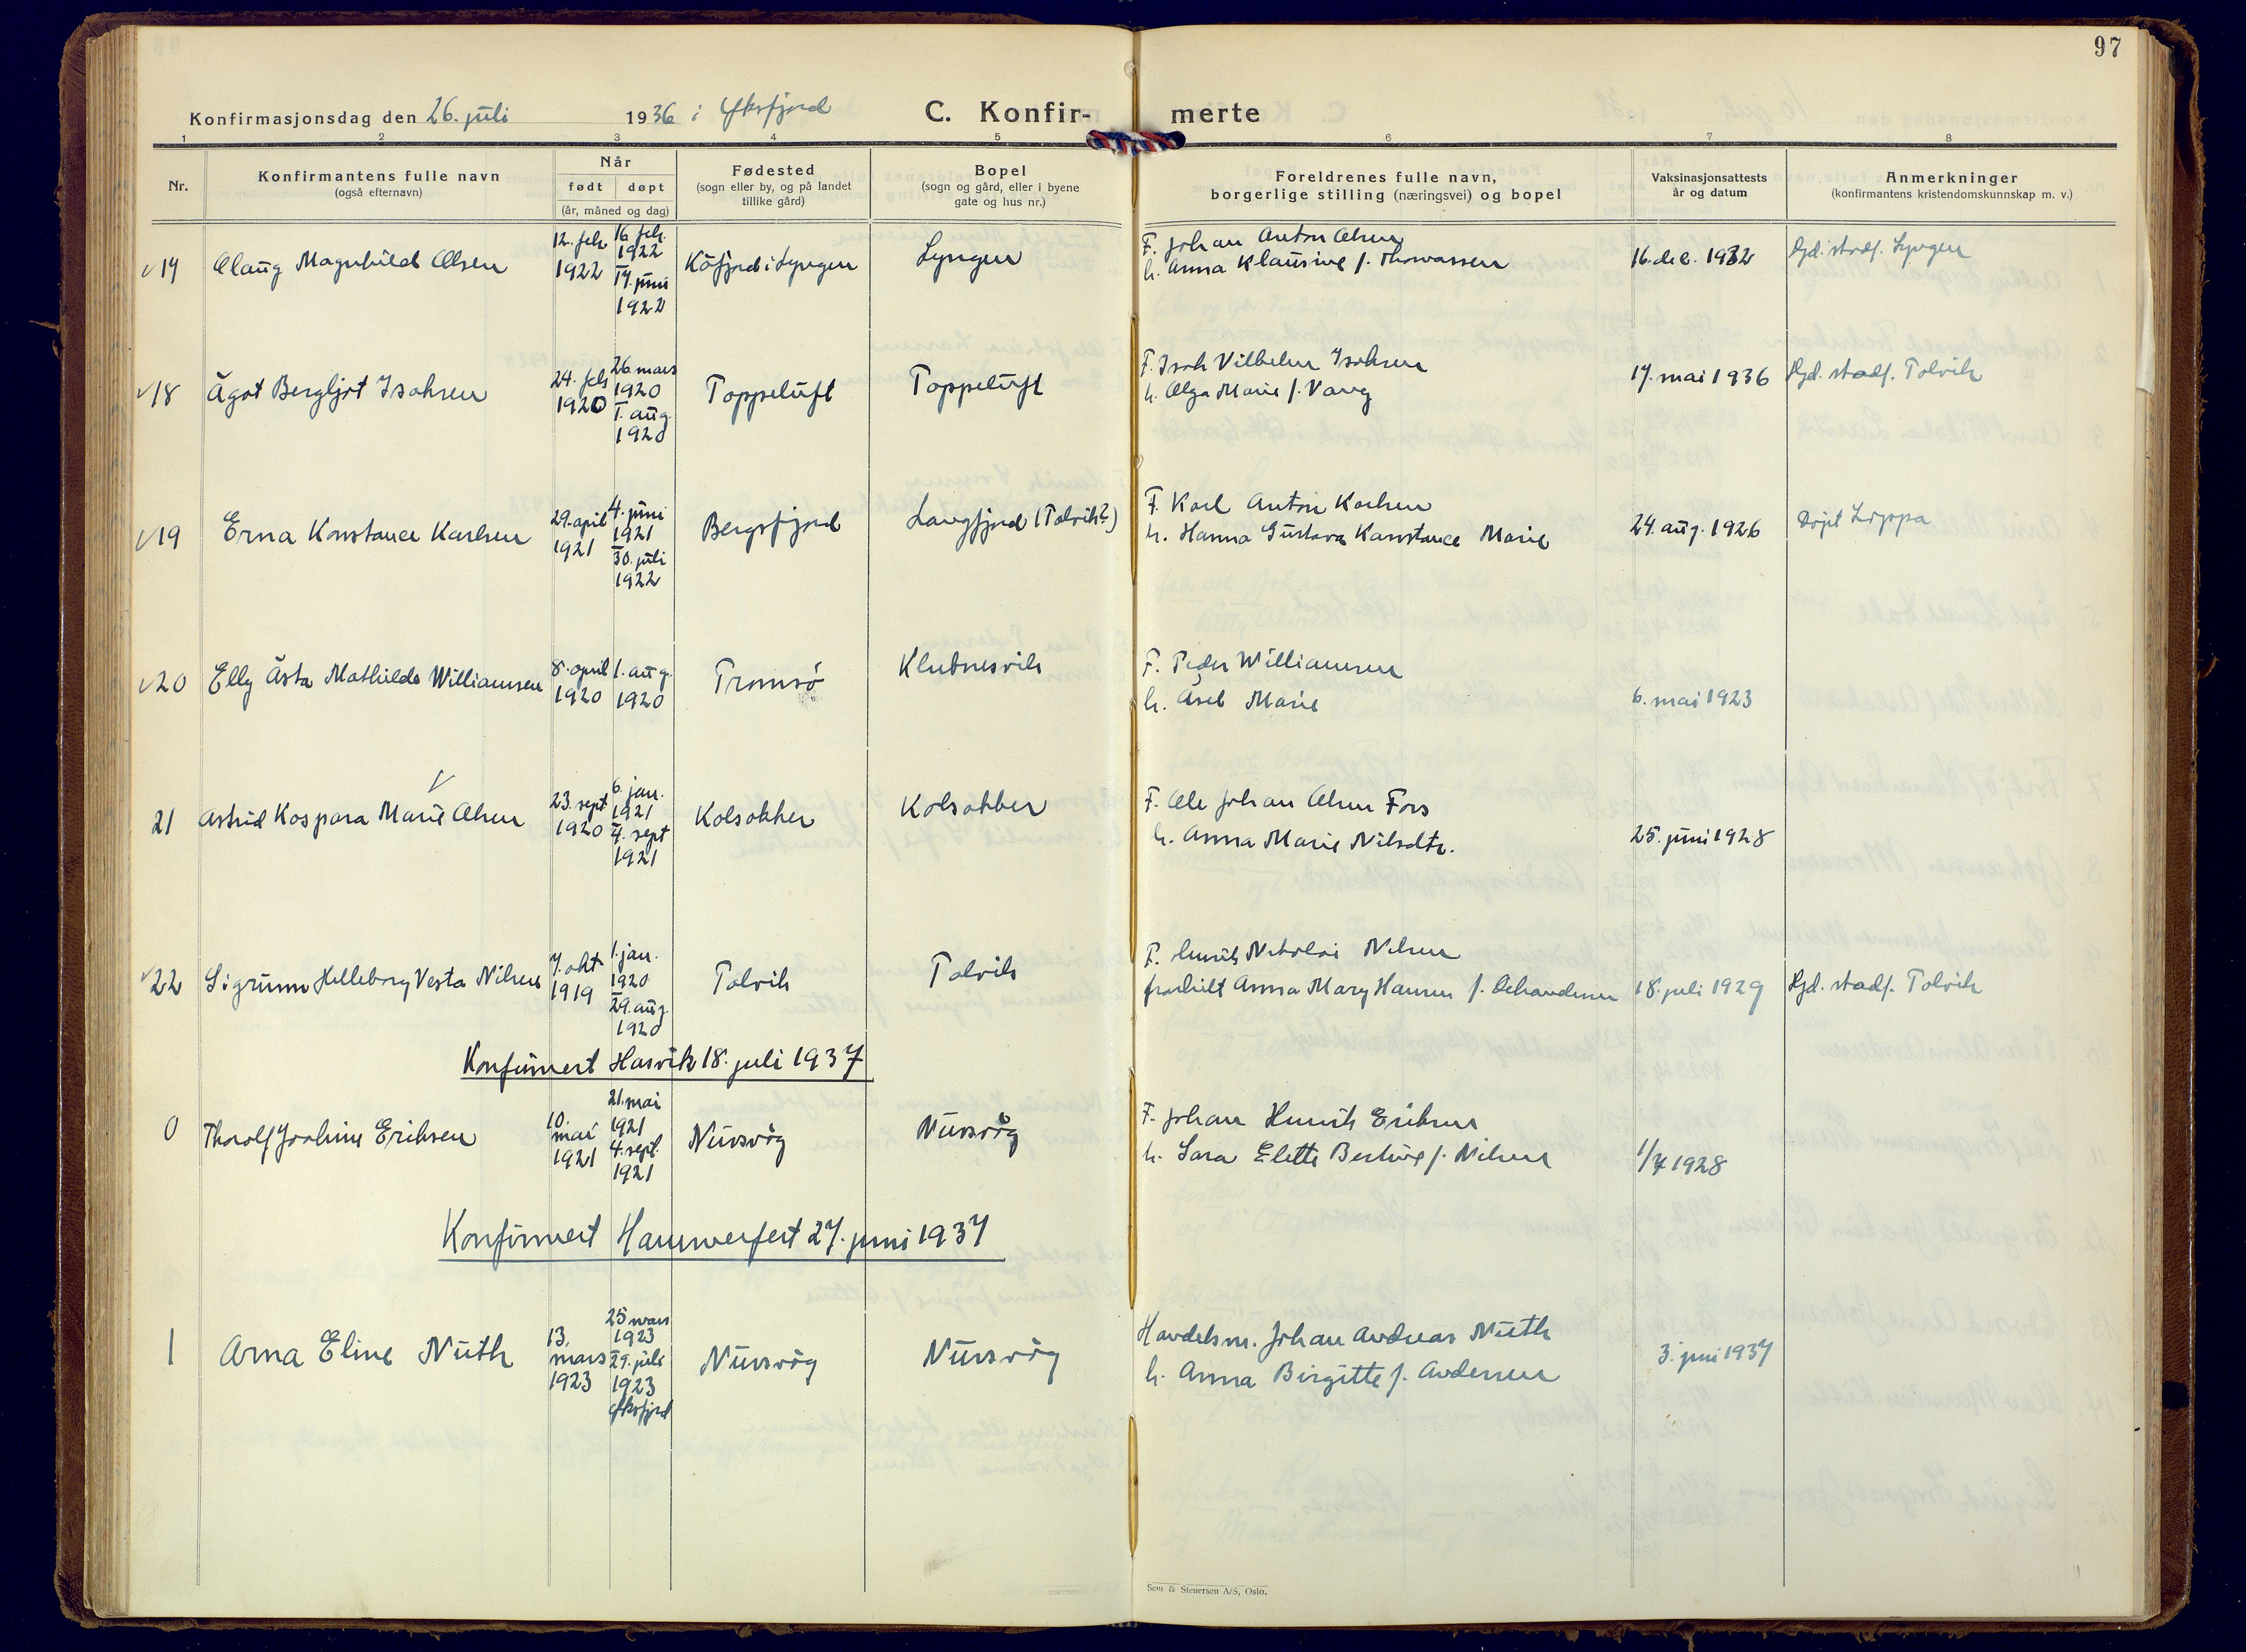 97
Konfirmasjonsdag den 26. juli 1936 i Øksfjord
C. Konfirmerte
1 2 3 4 5 6 7 8
Nr.
Konfirmantens fulle navn
(også efternavn)
Når
født døpt
(år, måned og dag)
Fødested
(sogn eller by, og på landet
tillike gård)
Bopel
(sogn og gård, eller i byene
gate og hus nr.)
Foreldrenes fulle navn,
borgerlige stilling (næringsvei) og bopel
Vaksinasjonsattests
år og datum
Anmerkninger
(konfirmantens kristendomskunnskap m. v.)
17 Olaug Magnhild Olsen
12. feb. 1922
16. feb. 1922
17. juni 1922
Kåfjord i Lyngen
Lyngen
F. Johan Anton Olsen
h. Anna Klausine f. Thomassen
16. des. 1932
Hjd. stadf. Lyngen
18 Ågot Bergljot Isaksen
24. feb 1920
26. mars 1920
1. aug. 1920
Toppeluft
Toppeluft
F. Isak Vilhelm Isaksen
h. Olga Marie f. Vang
17. mai 1936
Hjd. stadf. Talvik
19 Erna Konstance Karlsen
29. april 1921
4. juni 1921
30. juli 1922
Bergsfjord
Langfjord (Talvik?)
F. Karl Anton Karlsen
h. Hanna Gustava Konstance Marie
24. aug. 1926
Døpt Loppa
20 Elly Åsta Mathilde Williamsen
8. april 1920
1. aug. 1920
Tromsø
Klubnesvik
F. Peder Williamsen
h. Åsel Marie
6. mai 1923
21 Astrid Kospara Marie Olsen
23. sept 1920
6. jan. 1921
4. sept 1921
Kolsokker
Kolsokker
F. Ole Johan Olsen Fors
h. Anna Marie Nilsdtr.
25. juni 1928
22 Sigrunn Helleborg Vesta Nilsen
7. okt 1919
1. jan. 1920
29. aug. 1920
Talvik
Talvik
F. Henrik Nikolai Nilsen
fraskilt Anna Mary Hansen f.
18. juli 1929
Hjd. stadf. Talvik
Konfirmert Hasvik 18. juli 1937
0 Thorolf Joakim Eriksen
10. mai 1921
21. mai 1921
4. sept. 1921
Nuvsvåg
Nuvsvåg
F. Johan Henrik Eriksen
h. Sara Elette Berline f. Nilsen
1/7 1928
Konfirmert Hammerfest 27. juni 1937
1 Arna Eline Nuth
13. mars 1923
25 mars 1923
29. juli 1923
Øksfjord
Nuvsvåg
Nuvsvåg
Handelsm. Johan Andreas Nuth
h. Anna Birgitte f. Andersen
3. juni 1937
Sem & Stenersen A/S, Oslo.